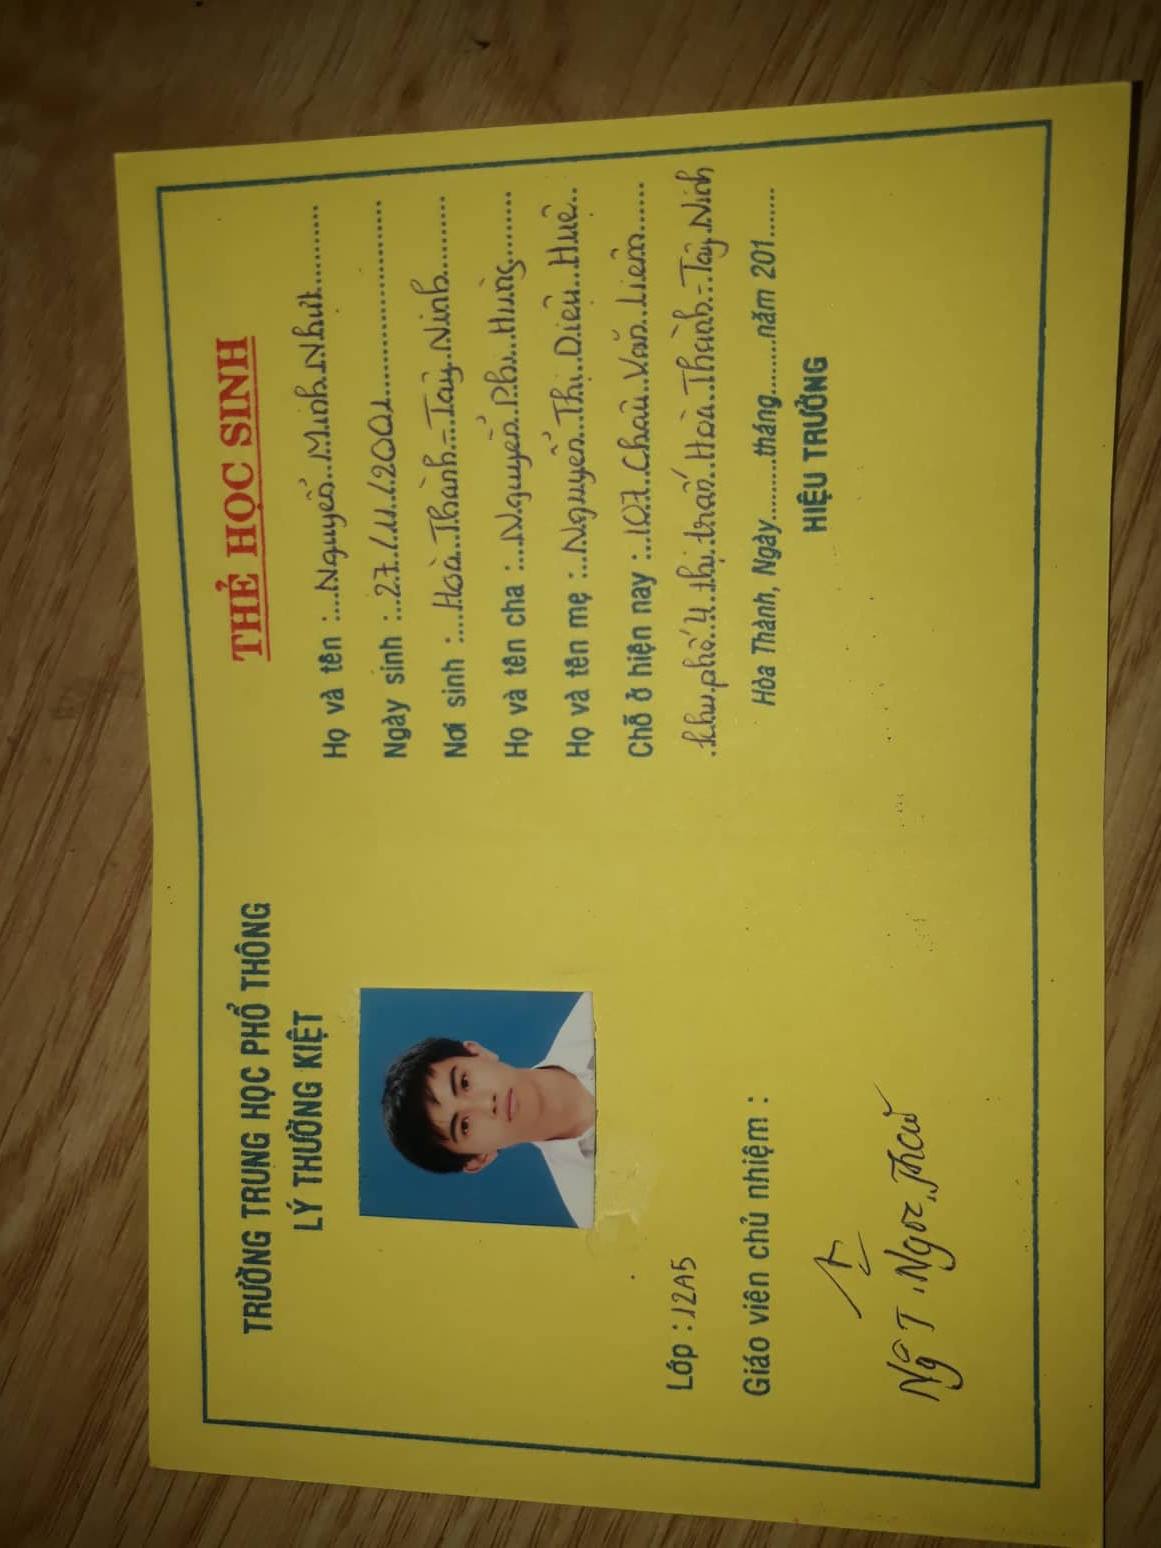 TRƯỜNG TRUNG HỌC PHỔ THÔNG
LÝ THƯỜNG KIỆT
Lớp : 12A5
Giáo viên chủ nhiệm :
Ngô T. Ngọc
THẺ HỌC SINH
Họ và tên : Nguyễn Minh Nhựt
Ngày sinh : 27/11/2001
Nơi sinh : Hoà Thành - Tây Ninh
Họ và tên cha : Nguyễn Phi Hùng
Họ và tên mẹ : Nguyễn Thị Diệu Huê
Chỗ ở hiện nay : 107 Châu Văn Liêm
khu phố 4 thị trấn Hoà Thành - Tây Ninh
Hòa Thành, Ngày.........tháng.........năm 201.......
HIỆU TRƯỞNG